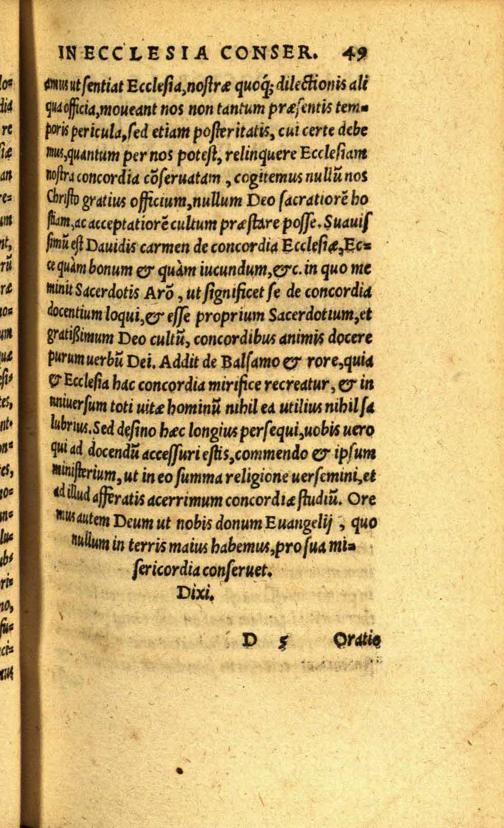 IN ECCLESIA CONSER. 49
amus ut ſentiat Eccleſia, noſtræ quoq; dilectionis ali
qua officia, moueant nos non tantum præſentis tem=
poris pericula, ſed etiam poſteritatis, cui certe debe
mus, quantum per nos poteſt, relinquere Eccleſiam
noſtra concordia cõſeruatam, cogitemus nullũ nos
Chriſto gratius officium, nullum Deo ſacratiorẽ ho
ſtiam, ac acceptatiorẽ cultum præſtare poſſe. Suauiſ
ſimũ eſt Dauidis carmen de concordia Eccleſiæ, Ec=
ce quàm bonum & quàm iucundum, &c. in quo me
minit Sacerdotis Arõ, ut ſignificet ſe de concordia
docentium loqui, & eſſe proprium Sacerdotium, et
gratißimum Deo cultũ, concordibus animis docere
purum uerbũ Dei. Addit de Balſamo & rore, quia
& Eccleſia hac concordia mirifice recreatur, & in
uniuerſum toti uitæ hominũ nihil ea utilius nihil ſa
lubrius. Sed deſino hæc longius perſequi, uobis uero
qui ad docendũ acceſſuri eſtis, commendo & ipſum
miniſterium, ut in eo ſumma religione uerſemini, et
ad illud afferatis acerrimum concordiæ ſtudiũ. Ore
mus autem Deum ut nobis donum Euangelij, quo
nullum in terris maius habemus, pro ſua mi=
ſericordia conſeruet.
Dixi.
D 5 Oratio